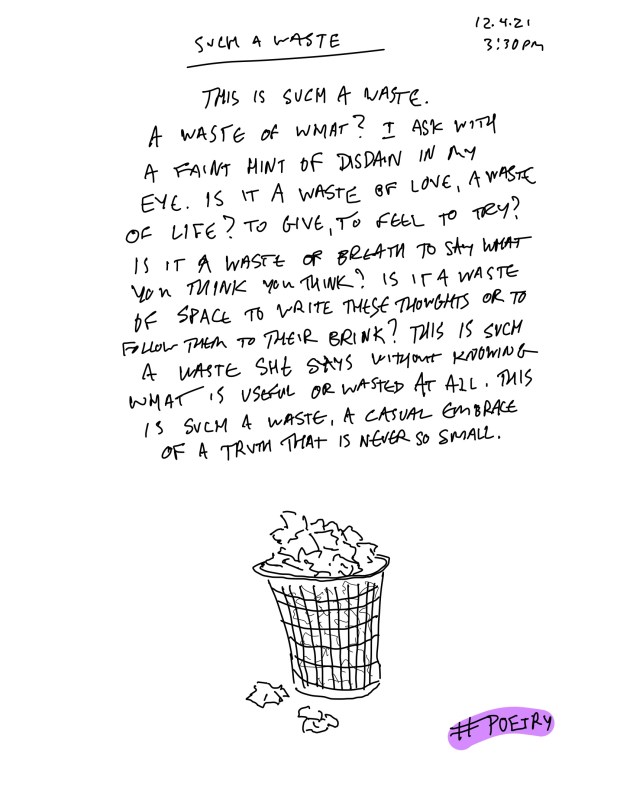 SUCH A WASTE
12.4.21
3:30PM
THIS IS SUCH A WASTE.
A WASTE OF WHAT? I ASK WITH
A FAINT HINT OF DISDAIN IN MY
EYE. IS IT A WASTE OF LOVE, A WASTE
OF LIFE? TO GIVE, TO FEEL TO TRY?
IS IT A WASTE OF BREATH TO SAY WHAT
YOU THINK YOU THINK? IS IT A WASTE
OF SPACE TO WRITE THESE THOUGHTS OR TO
FOLLOW THEM TO THEIR BRINK? THIS IS SUCH
A WASTE SHE SAYS WITHOUT KNOWING
WHAT IS USEFUL OR WASTED AT ALL. THIS
IS SUCH A WASTE, A CASUAL EMBRACE
OF A TRUTH THAT IS NEVER SO SMALL.
#POETRY